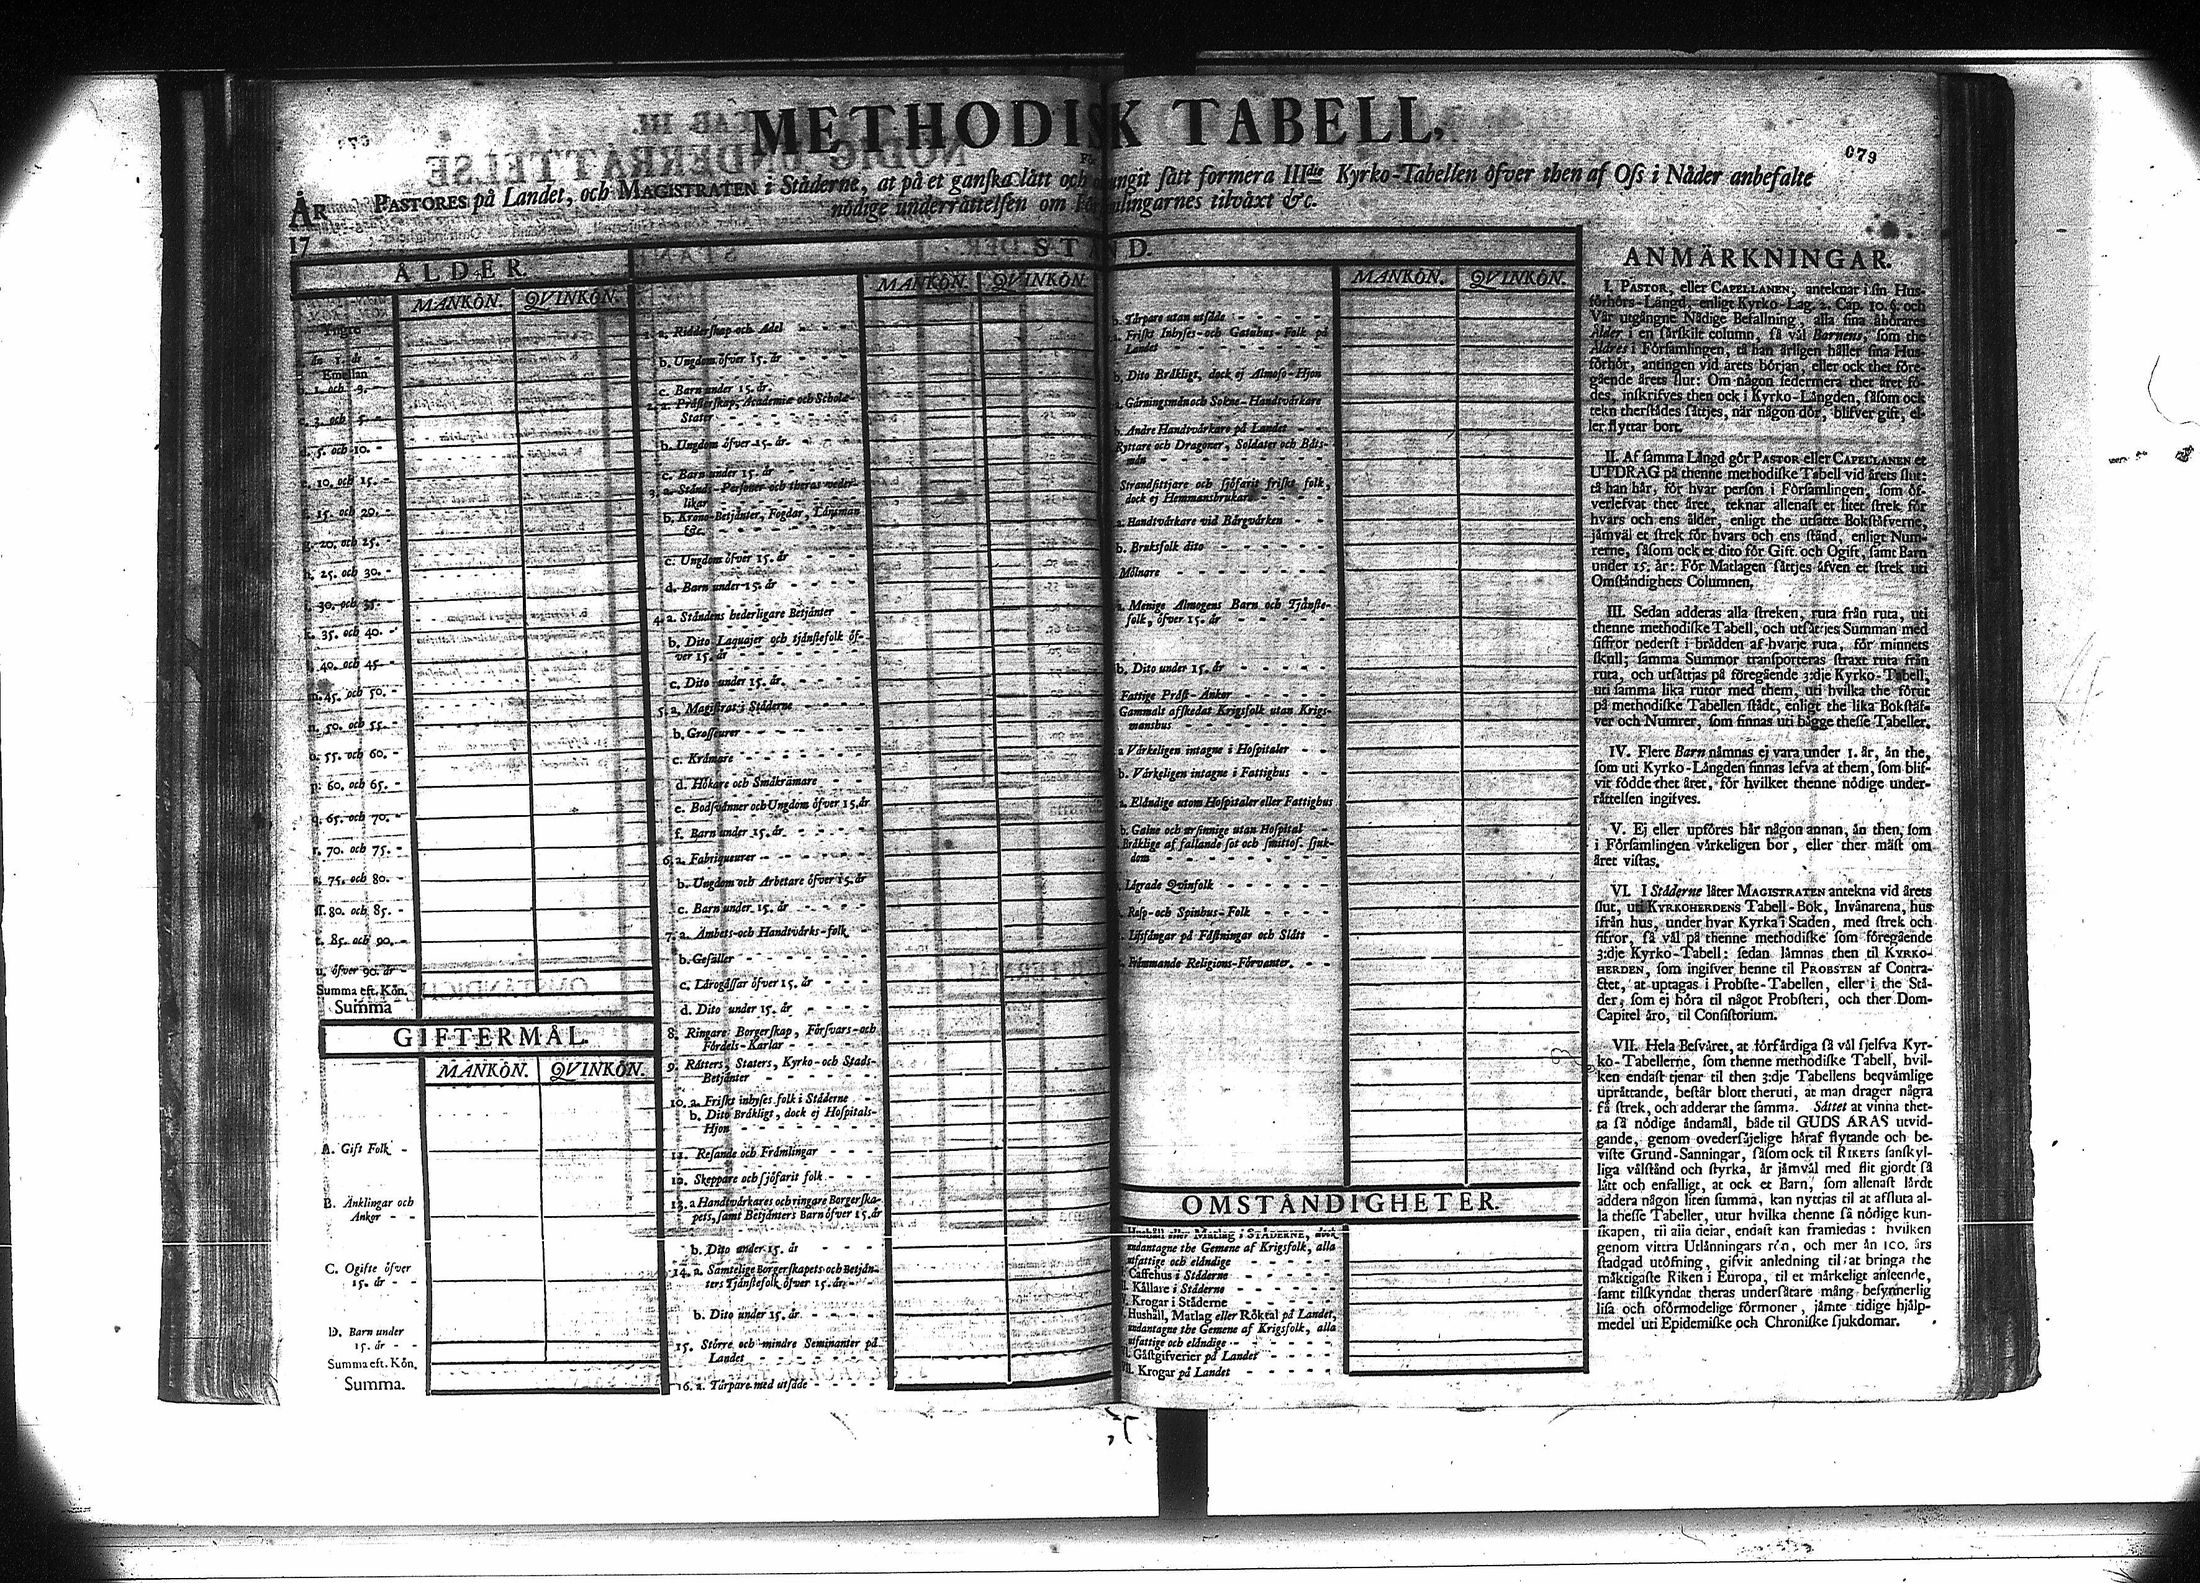 METHODISK TABELL,
079
PASTORES på Landet, och MAGISTRATEN i Ståderne, at på et ganska lått och sått formera IIIdie Kyrko-Tabellen öfver then af Oss i Nåder anbefalte
nödige underråttelsen om tilvåxt &c.
ÅR
17
ÅLDER.
MANKÖN. QVINKÖN.
Yngre
än 1. år -
Emellan
b. 1. och 3.
c. 3. och 5.
d. 5. och 10. -
e. 10. och 15. -
f. 15. och 20. -
g. 20. och 25. -
h. 25. och 30. -
i. 30. och 35.
k. 35. och 40. -
l. 40. och 45. -
m. 45. och 50. -
n. 50. och 55. -
o. 55. och 60. -
p. 60. och 65. -
q. 65. och 70. -
r. 70. och 75. -
s. 75. och 80. -
ss. 80. och 85. -
t. 85. och 90. -
u. öfver 90. år -
Summa eft. Kön.
Summa
GIFTERMÅL.
MANKÖN. QVINKÖN.
A. Gift Folk -
B. Änklingar och
Änkor - -
C. Ogifte öfver
15. år - -
D. Barn under
15. år - -
Summa eft. Kön.
Summa.
STÅND.
MANKÖN. QVINKÖN.
1. a. Ridderskap och Adel
b. Ungdom öfver 15. år
c. Barn under 15. år.
2. a. Pråsterskap, Academiæ och Scholæ-
Stater
b. Ungdom öfver 15. år
c. Barn under 15. år
3. a. Stånds-Personer och theras veder-
likar
b. Krono-Betjånter, Fogdar, Lånsmån
&c.
c. Ungdom öfver 15. år
d. Barn under 15. år
4. a. Ståndens hederligare Betjånter
b. Dito Laquajer och tjånstefolk öf-
ver 15. år
c. Dito under 15. år.
5. a. Magistrat i Ståderne
b. Grosseurer
c. Kråmare
d. Hökare och Småkråmare
e. Bodsvånner och Ungdom öfver 15. år
f. Barn under 15. år.
6. a. Fabriqueurer
b. Ungdom och Arbetare öfver 15. år
c. Barn under 15. år
7. a. Ämbets-och Handtvårks-folk
b. Gesåller
c. Lårogåssar öfver 15. år
d. Dito under 15. år
8. Ringare Borgerskap, Försvars-och
Fördels-Karlar
9. Råtters, Staters, Kyrko-och Stads-
Betjånter
10. a. Friskt inhyses folk i Ståderne
b. Dito Bråkligt, dock ej Hospitals-
Hjon
11. Resande och Fråmlingar
12. Skeppare och sjöfarit folk
13. a Handtvårkares och ringare Borgerska-
pets, samt Betjånters Barn öfver 15. år
b. Dito under 15. år
14. a. Samtelige Borgerskapets och Betjån-
ters Tjånstefolk öfver 15. år
b. Dito under 15. år
15. Större och mindre Seminanter på
Landet
16. a. Tårpare med utsåde
MANKÖN. QVINKÖN.
b. Tårpare utan utsåde
a. Friskt Inhyses-och Gatuhus-Folk på
Landet
b. Dito Bråkligt, dock ej Almoso-Hjon
a. Gårningsmån och Sokne-Handtvårkare
b. Andre Handtvårkare på Landet
Ryttare och Dragoner, Soldater och Båts-
mån
Strandsittjare och sjöfarit friskt folk,
dock ej Hemmansbrukare
a. Handtvårkare vid Bårgvårken
b. Bruksfolk dito
Mölnare
a. Menige Almogens Barn och Tjånste-
folk, öfver 15. år
b. Dito under 15. år
Fattige Pråst-Ånkor
Gammalt afskedat Krigsfolk utan Krigs-
manshus
a Vårkeligen intagne i Hospitaler
b. Vårkeligen intagne i Fattighus
a. Elåndige utom Hospitaler eller Fattighus
b. Galne och ursinnige utan Hospital
Bråklige af fallande sot och smittos. sjuk-
dom
Lågrade Qvinfolk
Rasp-och Spinhus-Folk
Lifsfångar på Fåstningar och Slått
Fråmmande Religions-Förvanter.
OMSTÅNDIGHETER.
Hushåll eller Matlag i STÅDERNE, dock
undantagne the Gemene af Krigsfolk, alla
utfattige och elåndige
Caffehus i Ståderne
Kållare i Ståderne
Krogar i Ståderne
Hushåll, Matlag eller Röktal på Landet,
undantagne the Gemene af Krigsfolk, alla
utfattige och elåndige
Gåstgifverier på Landet
Krogar på Landet
ANMÄRKNINGAR.
I. PASTOR, eller CAPELLANEN, antecknar i sin Hus-
förhörs-Långd, enligt Kyrko-Lag. 2. Cap. 10. §. och
Vår utgångne Nådige Befallning, alla sina åhörares
Ålder i en sårskilt column, så vål Barnens, som the
Åldres i Församlingen, tå han årligen håller sina Hus-
förhör, antingen vid årets början, eller ock thet före-
gående årets slut: Om någon sedermera thet året fö-
des, inskrifves then ock i Kyrko-Långden, såsom ock
tekn therstådes såttjes, når någon dör, blifver gift, el-
ler flyttar bort.
II. Af samma Långd gör PASTOR eller CAPELLANEN et
UTDRAG på thenne methodiske Tabell vid årets slut:
tå han hår, för hvar person i Församlingen, som öf-
verlefvat thet året, teknar allenast et litet strek för
hvars och ens ålder, enligt the utsatte Bokståfverne,
jåmvål et strek för hvars och ens stånd, enligt Num-
rerne, såsom ock et dito för Gift. och Ogift, samt Barn
under 15. år: För Matlagen såttjes åfven et strek uti
Omståndighets Columnen.
III. Sedan adderas alla streken, ruta från ruta, uti
thenne methodiske Tabell, och utsåttjes Summan med
siffror nederst i brådden af hvarje ruta, för minnets
skull; samma Summor transporteras straxt ruta från
ruta, och utsåttjas på föregående 3:dje Kyrko-Tabell,
uti samma lika rutor med them, uti hvilka the förut
på methodiske Tabellen stådt, enligt the lika Bokståf-
ver och Numrer, som finnas uti bågge thesse Tabeller.
IV. Flere Barn nåmnas ej vara under 1. år, ån the,
som uti Kyrko-Långden finnas lefva at them, som blif-
vit födde thet året, för hvilket thenne nödige under-
råttelsen ingifves.
V. Ej eller upföres hår någon annan, ån then, som
i Församlingen vårkeligen bor, eller ther måst om
året vistas.
VI. I Ståderne låter MAGISTRATEN antekna vid årets
slut, uti KYRKOHERDENS Tabell-Bok, Invånarena, hus
ifrån hus, under hvar Kyrka i Staden, med strek och
siffror, så vål på thenne methodiske som föregående
3:dje Kyrko-Tabell: sedan låmnas then til KYRKO-
HERDEN, som ingifver henne til PROBSTEN af Contra-
ctet, at uptagas i Probste-Tabellen, eller i the Stå-
der, som ej höra til något Probsteri, och ther Dom-
Capitel åro, til Consistorium.
VII. Hela Besvåret, at förfårdiga så vål sjelfva Kyr-
ko-Tabellerne, som thenne methodiske Tabell, hvil-
ken endast tjenar til then 3:dje Tabellens beqvåmlige
upråttande, består blott theruti, at man drager några
få strek, och adderar the samma. Såttet at vinna thet-
ta så nödige åndamål, både til GUDS ÄRAS utvid-
gande, genom ovedersåjelige håraf flytande och be-
viste Grund-Sanningar, såsom ock til RIKETS sanskyl-
liga vålstånd och styrka, år jåmvål med flit gjordt så
lått och enfalligt, at ock et Barn, som allenast lårdt
addera någon liten summa, kan nyttjas til at afsluta al-
la thesse Tabeller, utur hvilka thenne så nödige kun-
skapen, til alla delar, endast kan framledas: hvilken
genom vittra Utlånningars rön, och mer ån 100. års
stadgad utöfning, gifvit anledning til at bringa the
måktigaste Riken i Europa, til et mårkeligt anseende,
samt tilskyndat theras undersåtare mång besynnerlig
lisa och oförmodelige förmoner, jåmte tidige hjålp-
medel uti Epidemiske och Chroniske sjukdomar.